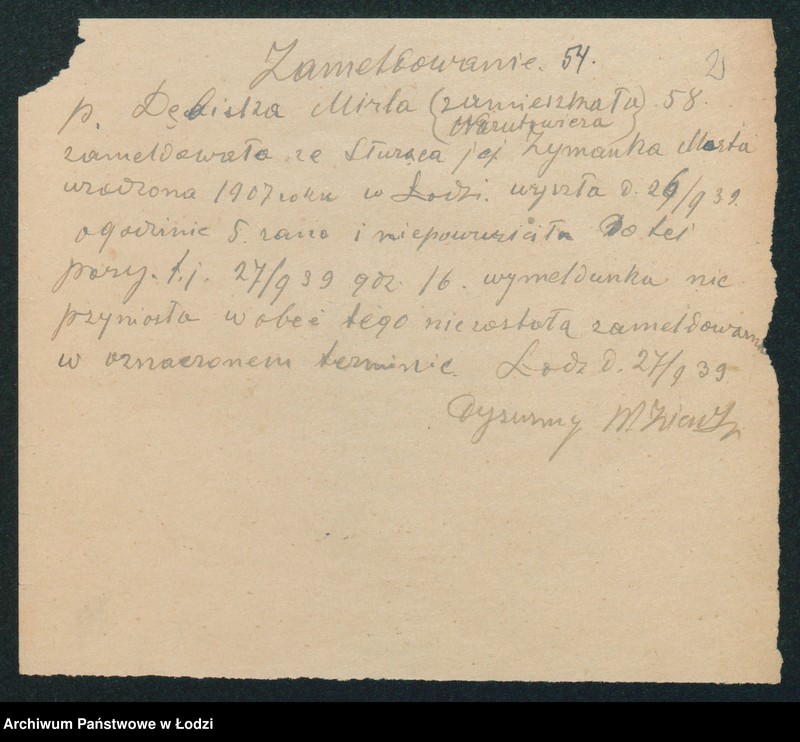 Zameldowanie. 54. 2
p. Dębiska Mirla (zamieszkała) 58.
Narutowicza
zameldowała ze Słuząca jej Zymanka Marta
urodzona 1907 roku w Łodzi. wyszła d. 26/9 39.
o godzinie 5. rano i niepowruciła Do tej
pory. t.j. 27/9 39 godz. 16. wymeldunku nie
przyniosła wobec tego niezostałą zameldowana
w oznaczonem terminie. Łodz d. 27/9 39
Dyzurny
Archiwum Państwowe w Łodzi